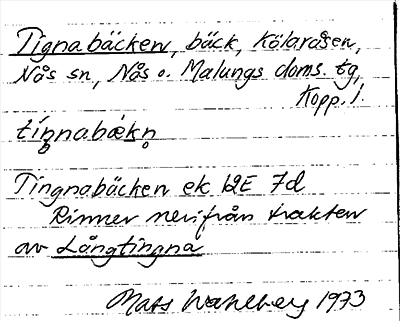 Tignabäcken, bäck, Kölaråsen,
Nås sn, Nås o. Malungs doms. tg,
Kopp. l.
tíŋnabǽkn̥
Tingnabäcken ek 12E 7d
Rinner neri från trakten
av Långtingna
Mats Wahlberg 1973